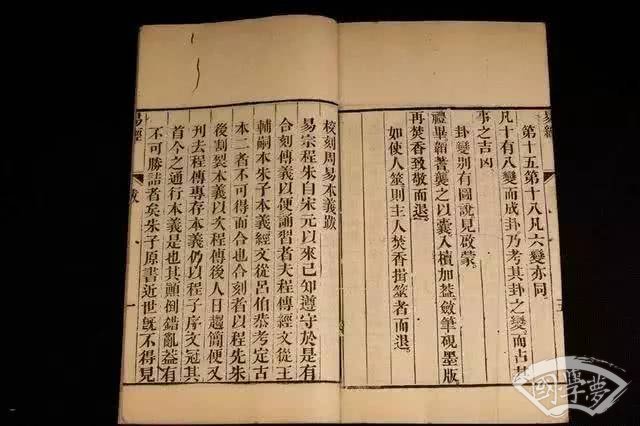 易經
第十五第十八凡六變亦同
凡十有八變而成卦乃考其卦之變而占其
事之吉凶
卦變別有圖說見啟蒙
禮畢韜蓍襲之以囊入櫝加蓋斂筆硯墨版
再焚香致敬而退
如使人筮則主人焚香揖筮者而退
五
校刻周易本義跋
易宗程朱自宋元以來已知遵守於是有
合刻傳義以便誦習者夫程傳經文從王
輔嗣本朱子本義經文從呂伯恭考定古
本二者不可得而合也合刻者以程先朱
後割裂本義以次程傳後人日趨簡便又
刊去程傳專存本義仍以程子序文冠其
首今之通行本義是也其顛倒錯亂葢有
不可勝詰者矣朱子原書近世旣不得見
易經
跋
一
國學夢